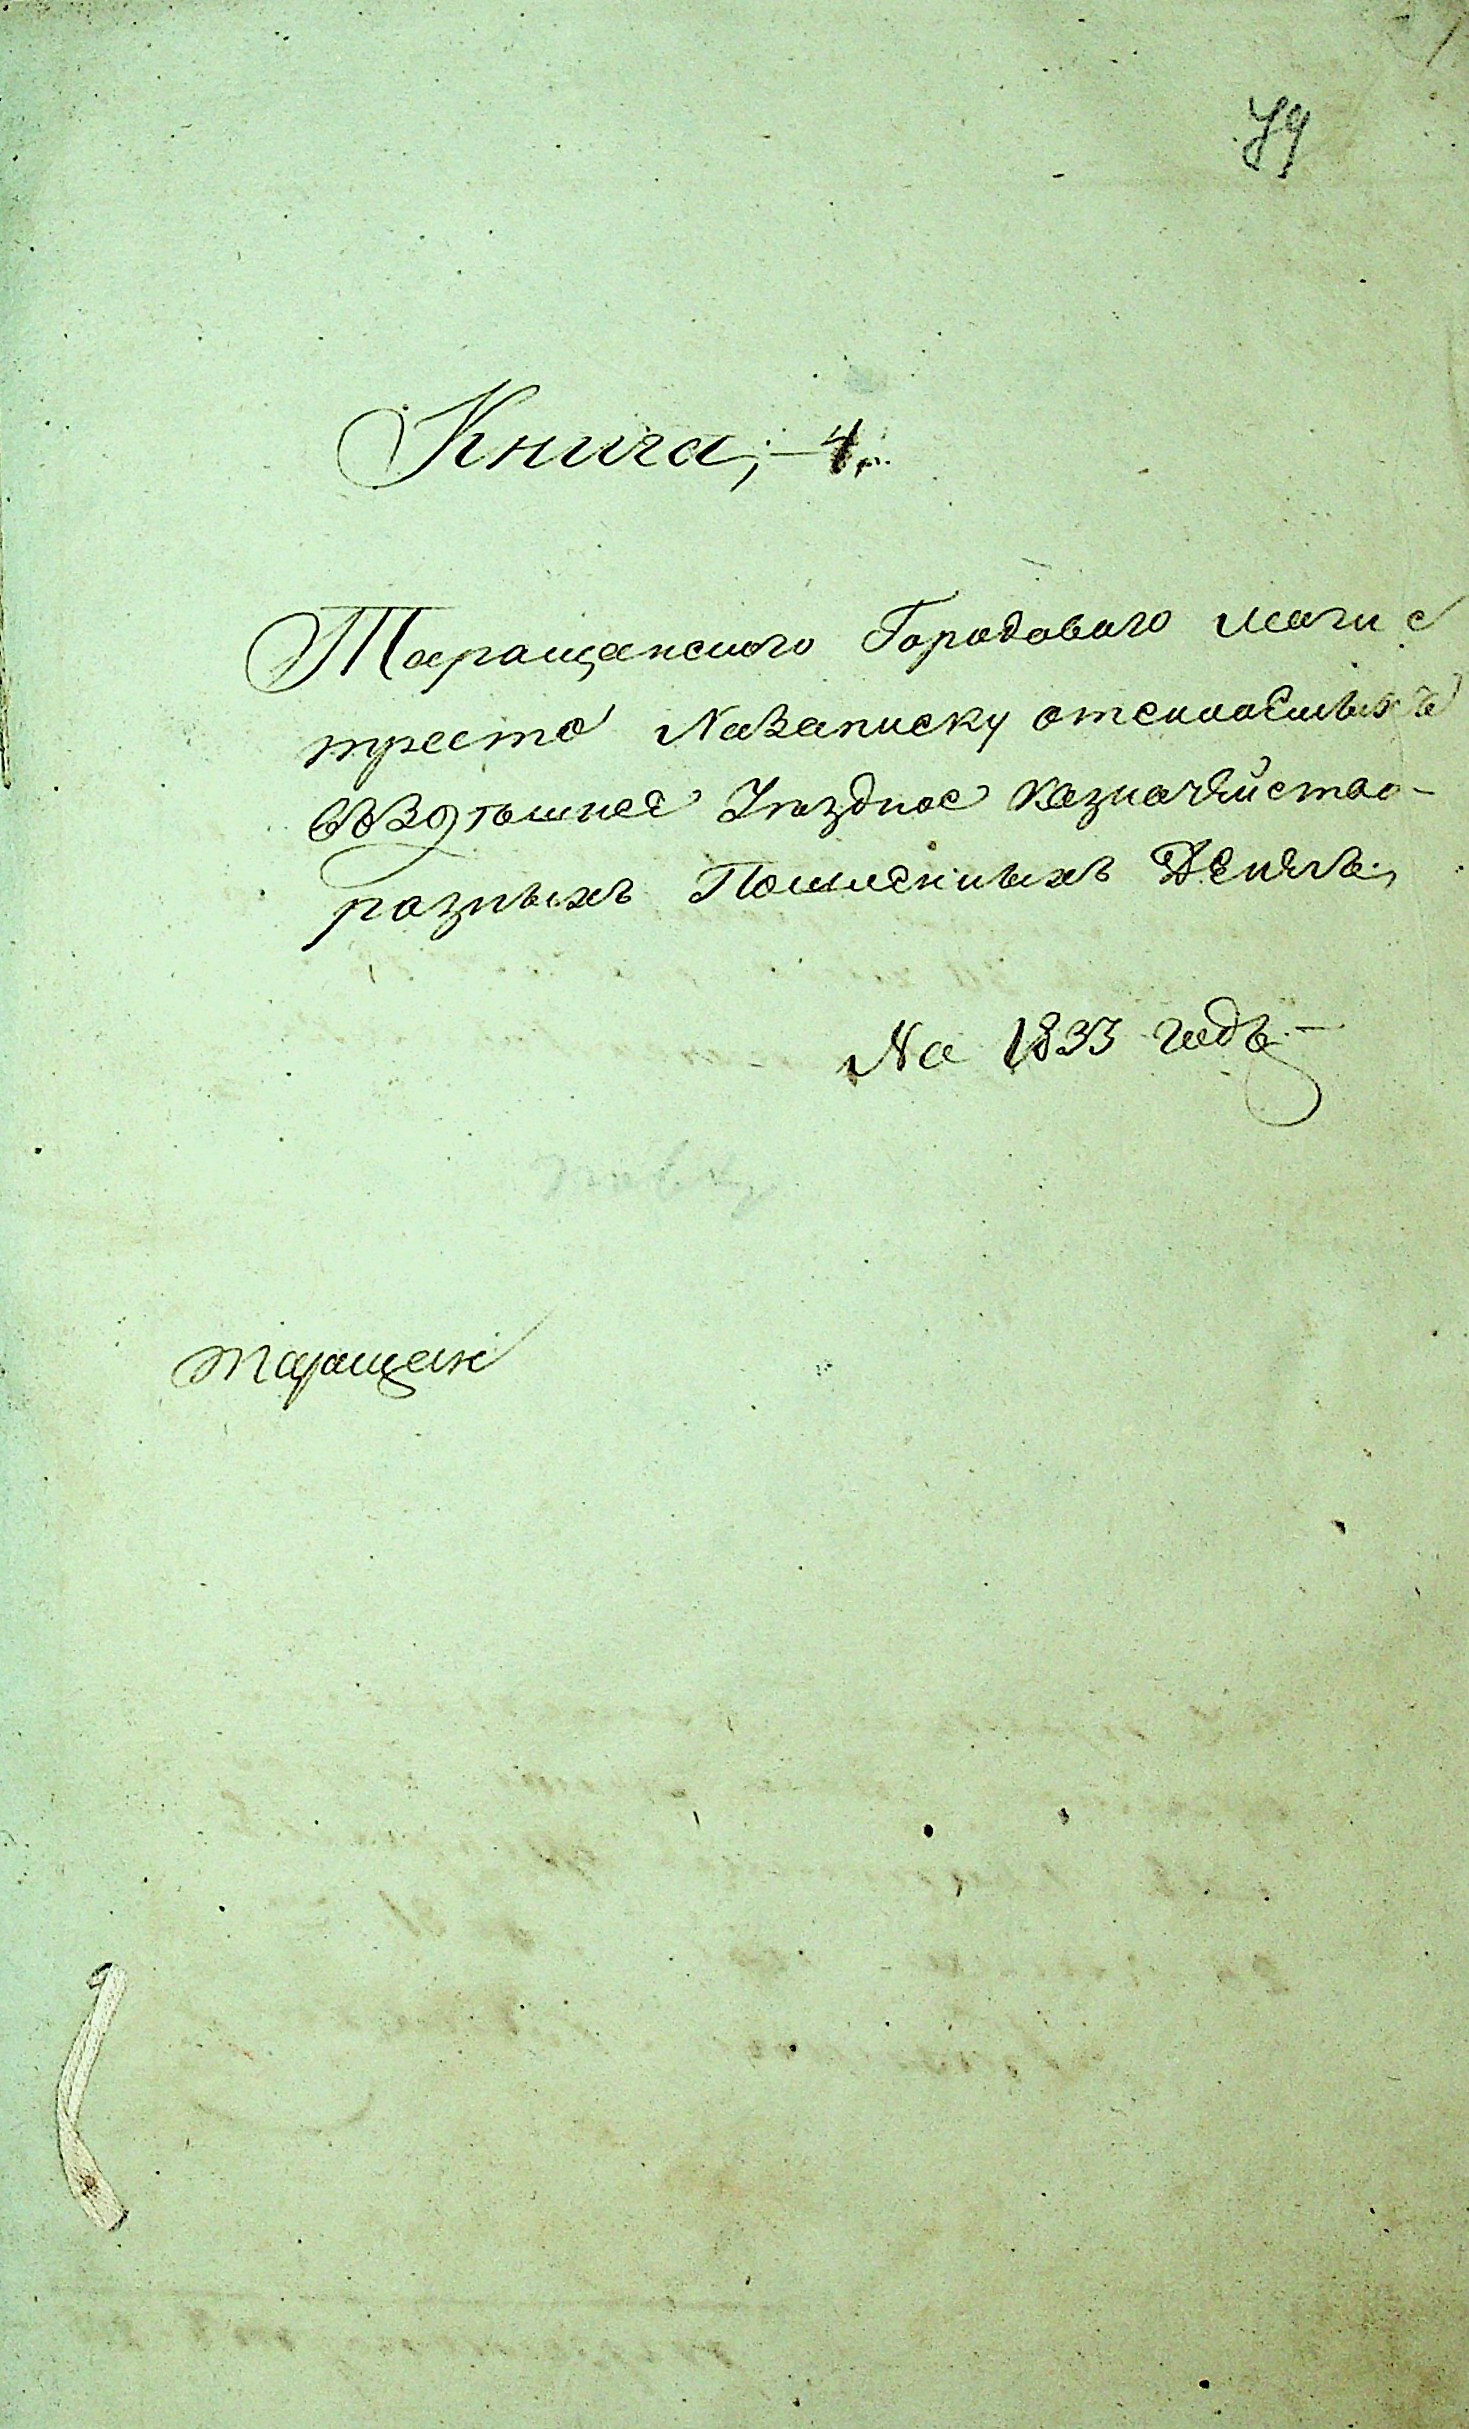 79
Книга, 4.
Таращанского Городоваго магис
трата На Записку отсилаемыхъ
въ Здѣшнее Уѣздное казначейство-
разныхъ Пошлинныхъ Денегъ,
На 1833 годъ.
Таращан